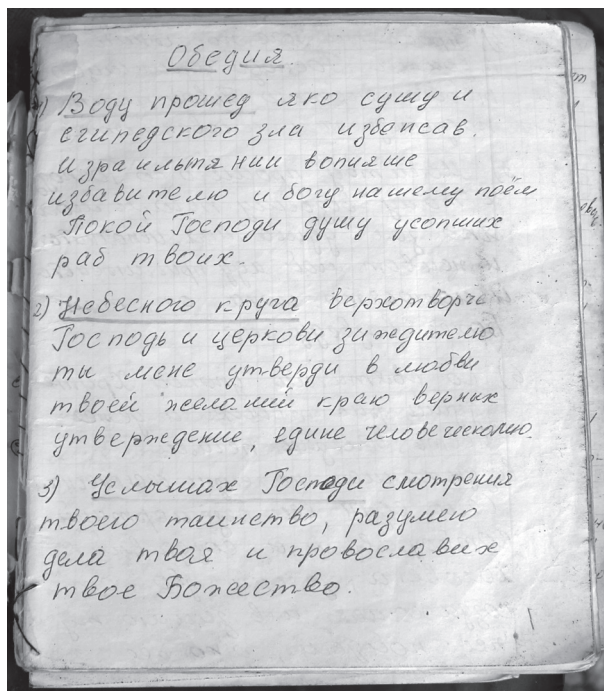 Обедия.
1) Воду прошед яко сушу и
египедского зла избепсав.
израильтянии вопияше
избавителю и богу нашему поём
Покой Господи душу усопших
раб твоих.
2) Небесного круга верхотворче
Господь и церкови зиждителю
ты мене утверди в любви
твоей желаний краю верных
утверждение, едине человеческолю.
3) Услышах Господи смотрения
твоего таинство, разумею
дела твоя и провославих
твое Божество.
1